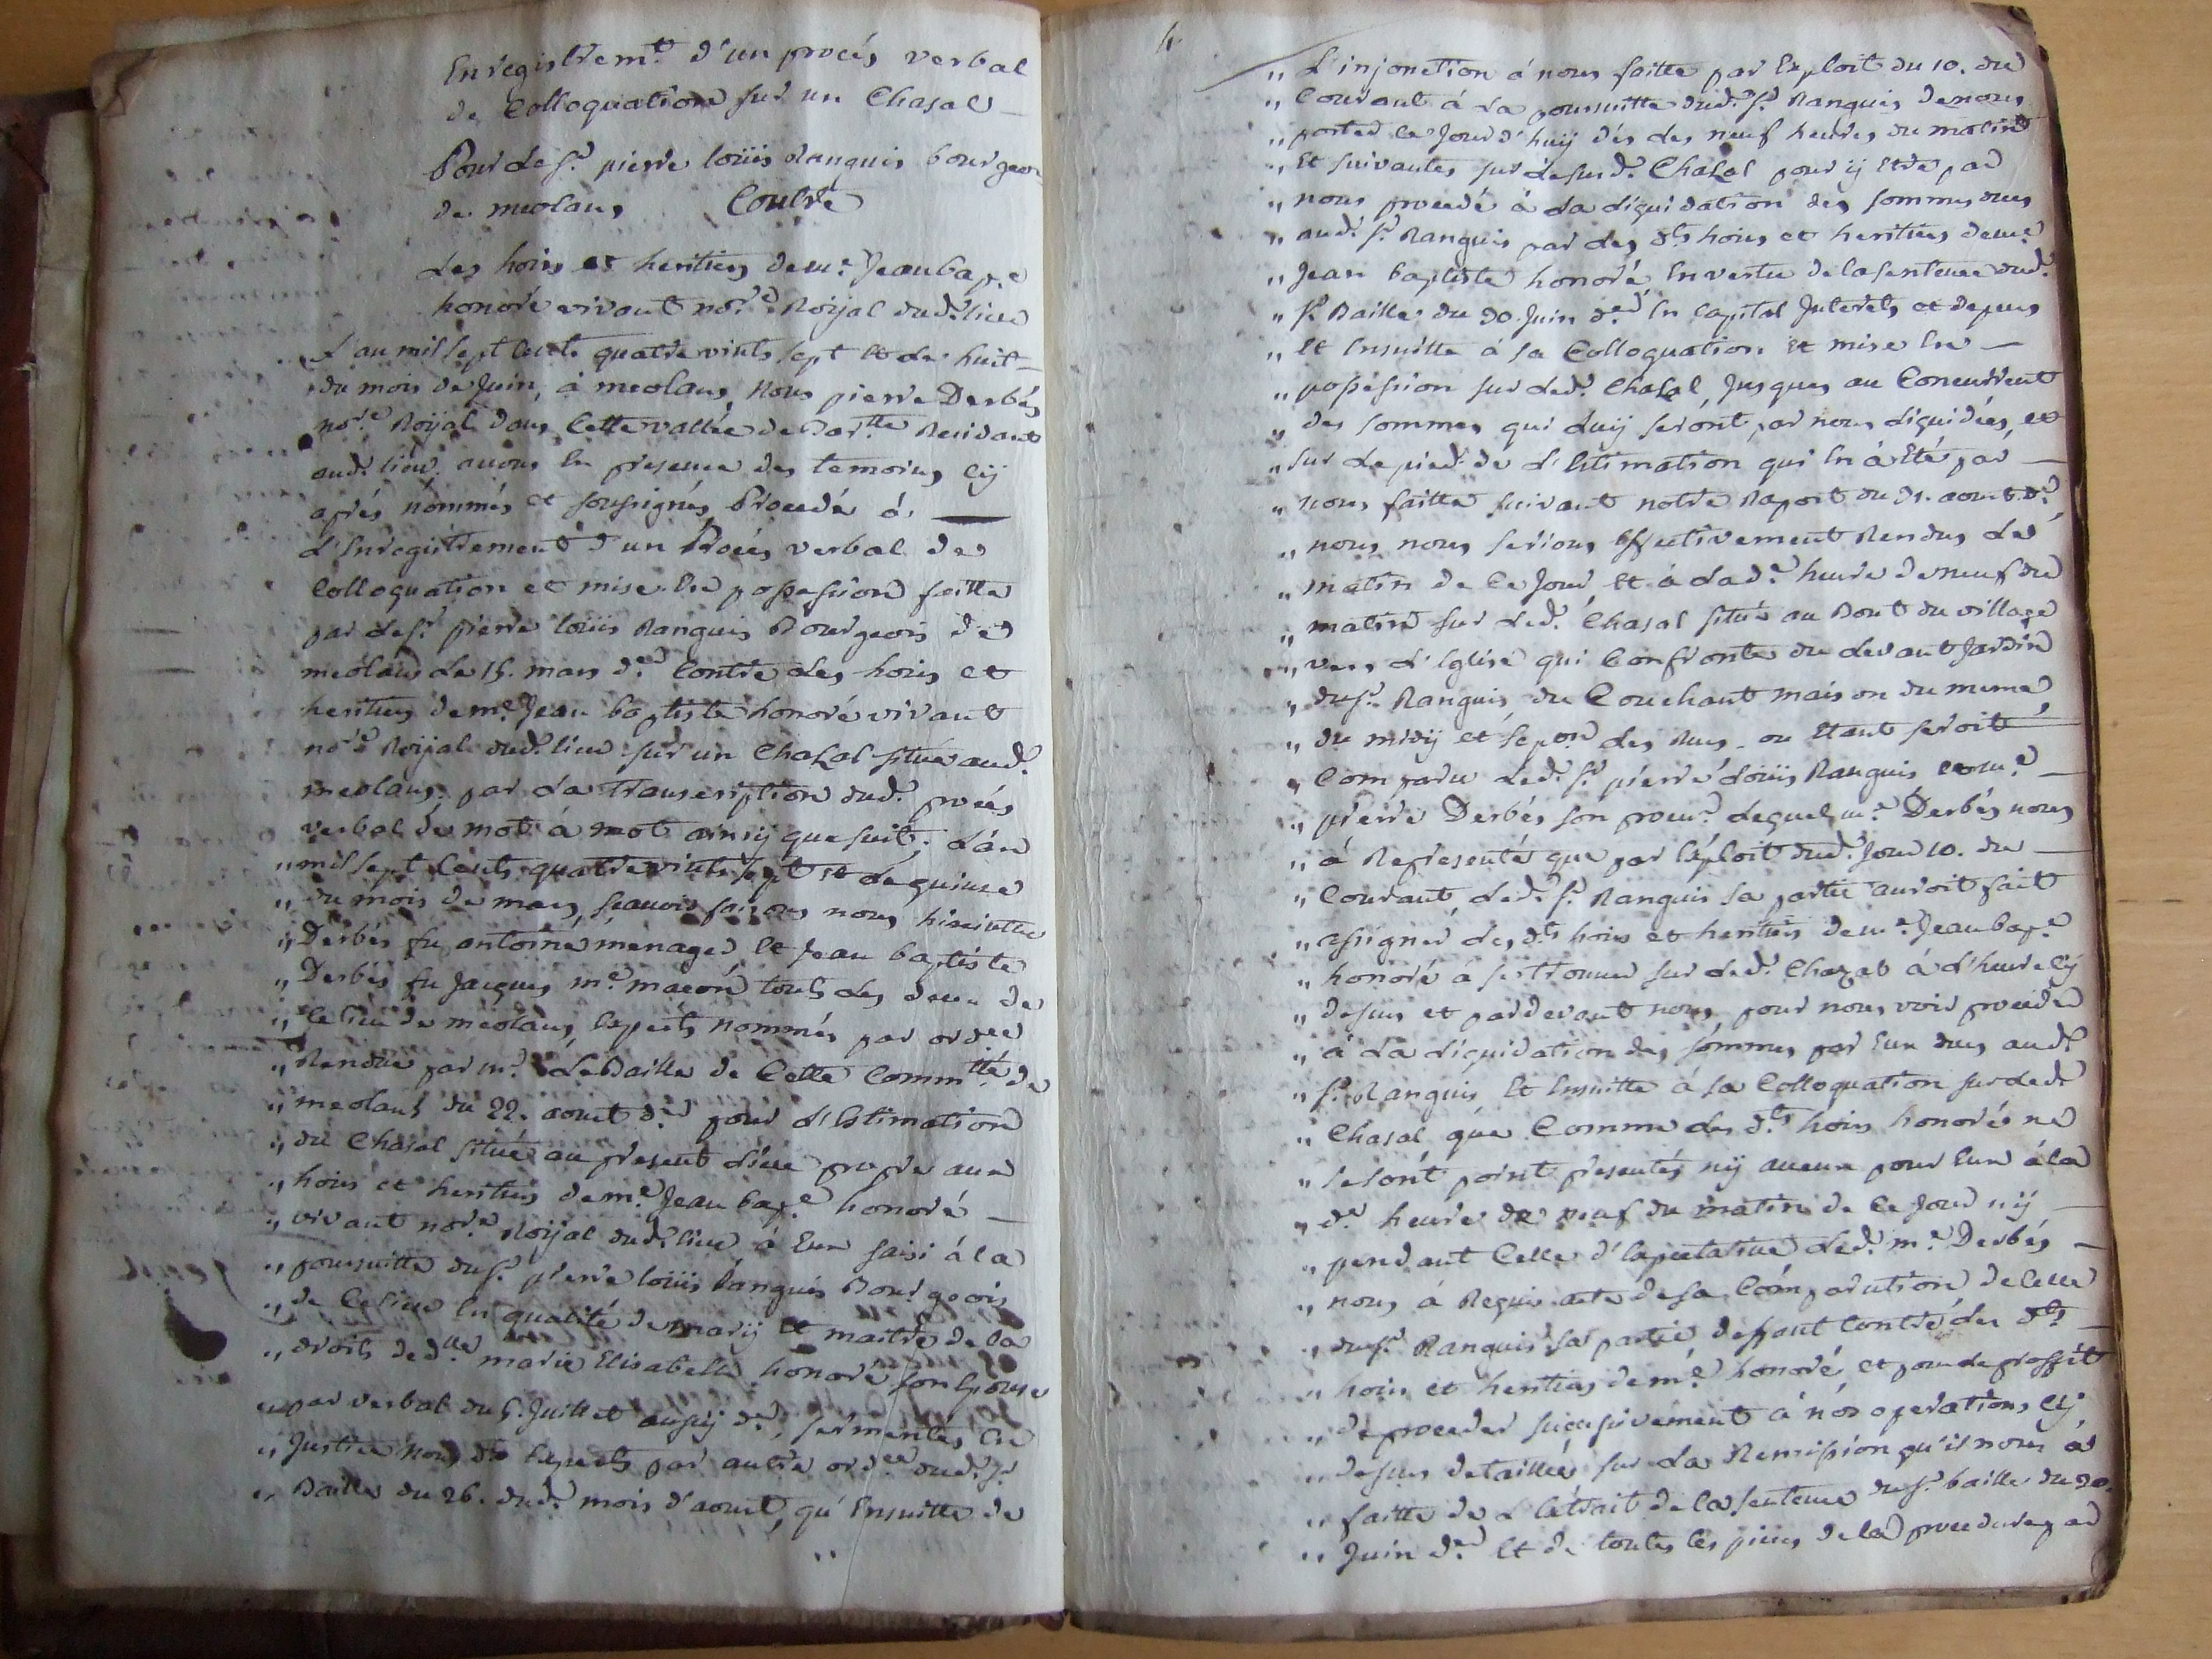 Enregistrem.t d'un procés verbal
de Colloquation sur un Chasal
Pour le s.r pierre loüis Ranguis bourgeois
de meolans Contre
Les hoirs et heritiers de m.e Jean bap.e
honoré vivant no.re Roïjal dud. lieu
L'an mil sept cents quatre vints sept et le huit
du mois de Juin, á meolans, Nous pierre Derbés
no.re Roïjal dans Cette vallée de Bar.tte Residant
aud. lieu. avons En presence des temoins Cÿ
aprés nommés et soussignés Procedé á
L'Enregistrement d'un Procés verbal de
Colloquation et mise En possession faitte
par le s.r pierre loüis Ranguis Bourgeois de
meolans le 15. mars d.er Contre les hoirs et
heritiers de m.e Jean baptiste honoré vivant
no.re Roïjal dud. lieu sur un Chasal situé aud.
meolans. par la transcription dud. procés
verbal de mot á mot ainsÿ que suit. L'an
,, mil sept Cents quatre vints sept et le quinse
,, du mois de mars, sçavoir faisons nous hiacinthe
,, Derbés fu antoine menager et Jean baptiste
,, Derbés fu Jacques m.e maçon touts les deux de
,, Ce lieu de meolans, Experts nommés par ord.ce
,, Rendue par m.r Le Baille de Cette Comm.té de
,, meolans du 22. aoust d.er pour L'Estimation
,, du Chasal situé au present Lieu propre aux
,, hoirs et heritiers de m.e Jean bap.e honoré
,, vivant no.re Roïjal dud. lieu á Eux saisi á la
,, poursuitte du s.r pierre loüis Ranguis Bourgeois
,, de Ce lieu En qualité de marÿ Et maitre de la
,, droits de d.lle marie Elisabeth honoré son Epouse
,, par verbal du 5. Juillet aussÿ d.er, sermentés En
,, Justice Nous d.ts Experts par autre ord.ce dud. s.r
,, Baille du 26. dud. mois d'aoust, qu'Ensuitte de
,, L'injonction á nous faitte par Exploit du 10. du
,, Courant á La poursuitte dud. s.r Ranguis de nous
,, porter Ce Jourd'huÿ dés les neuf heures du matin
,, Et suivantes sur le susd. Chasal pour ÿ Etre par
,, nous procedé á La Liquidation des sommes dues
,, aud. s.r Ranguis par les d.ts hoirs et heritiers de m.e
,, Jean baptiste honoré En vertu de la sentence dud.
,, s.r Baille du 30. Juin d.er En Capital Interets et depens
,, Et Ensuitte á sa Colloquation et mise En
,, possession sur led. Chasal Jusques au Concurrent
,, des sommes qui luÿ seront par nous Liquidées, et
,, sur le pied de L'Estimation qui En á Eté par
,, nous faitte suivant notre Raport du 31. aoust d.er
,, nous nous serions Effectivement Rendus Le
,, matin de Ce Jour, Et á Lad.e heure de neuf du
,, matin sur led. Chasal situé au Bout du village
,, vers L'Eglise qui Confronte du Levant Jardin
,, du s.r Ranguis du Couchant maison du meme,
,, du midÿ et sep.on des Rues. ou Etant seroit
,, Comparu led. s.r pierre Loüis Ranguis et m.e
,, pierre Derbés son procu.r Lequel m.e Derbés nous
,, á Representé que par Exploit dud. Jour 10. du
,, Courant, Led. s.r Ranguis sa partie auroit fait
,, assigner les d.ts hoirs et heritiers de m.e Jean bap.e
,, honoré á se trouver sur led. Chazal á L'heure Cÿ
,, dessus et pardevant nous pour nous voir proceder
,, á La Liquidation des sommes par Eux dues aud.
,, s.r Ranguis Et Ensuitte á sa Colloquation sur led.
,, Chasal que Comme les d.ts hoirs honorés ne
,, se sont point presentés nÿ aucun pour Eux á la
,, d.e heure de neuf du matin de Ce Jour nÿ
,, pendant Celle d'Expectative, Led. m.e Derbés
,, nous á Requis acte de sa Comparution de Celle
,, du s.r Ranguis sa partie, deffaut Contre les d.ts
,, hoirs et heritiers de m.e honoré, et pour le proffit
,, de proceder sucessivement á nos operations Cÿ
,, dessus detaillées sur La Remission qu'il nous á
,, faitte de L'Extrait de la sentence du s.r baille du 30.
,, Juin d.er Et de toutes les pieces de la procedure par